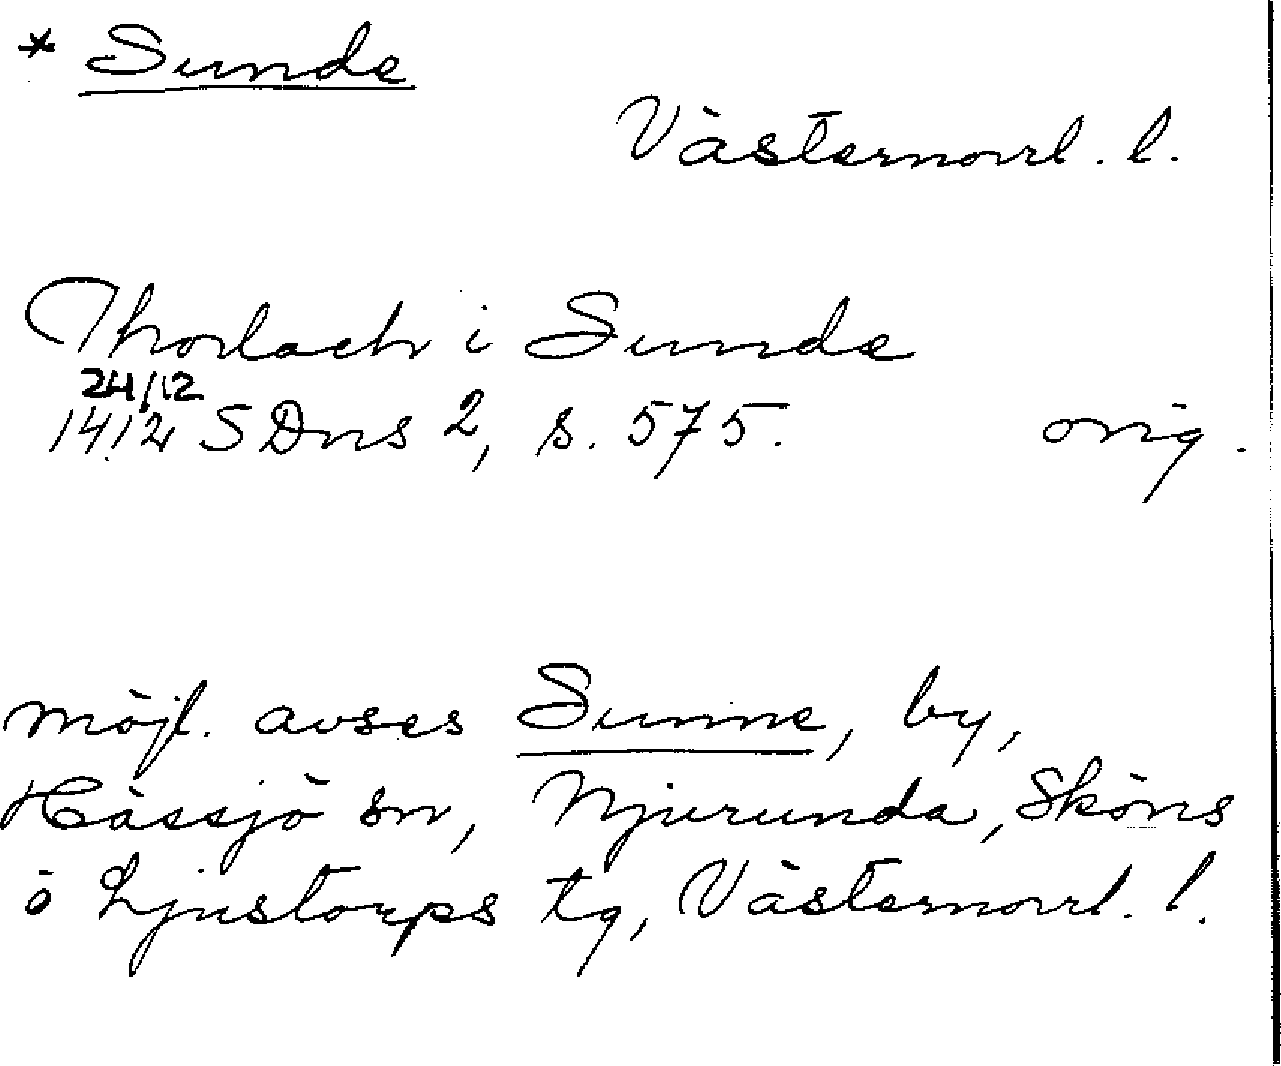 * Sunde
Västernorrl. l.
Thorlach i Sunde
24/12
1412 SDns 2, s. 575. orig.
möjl. avses Sunne, by,
Hässjö sn, Njurunda, Sköns
o Ljustorps tg, Västernorrl. l.